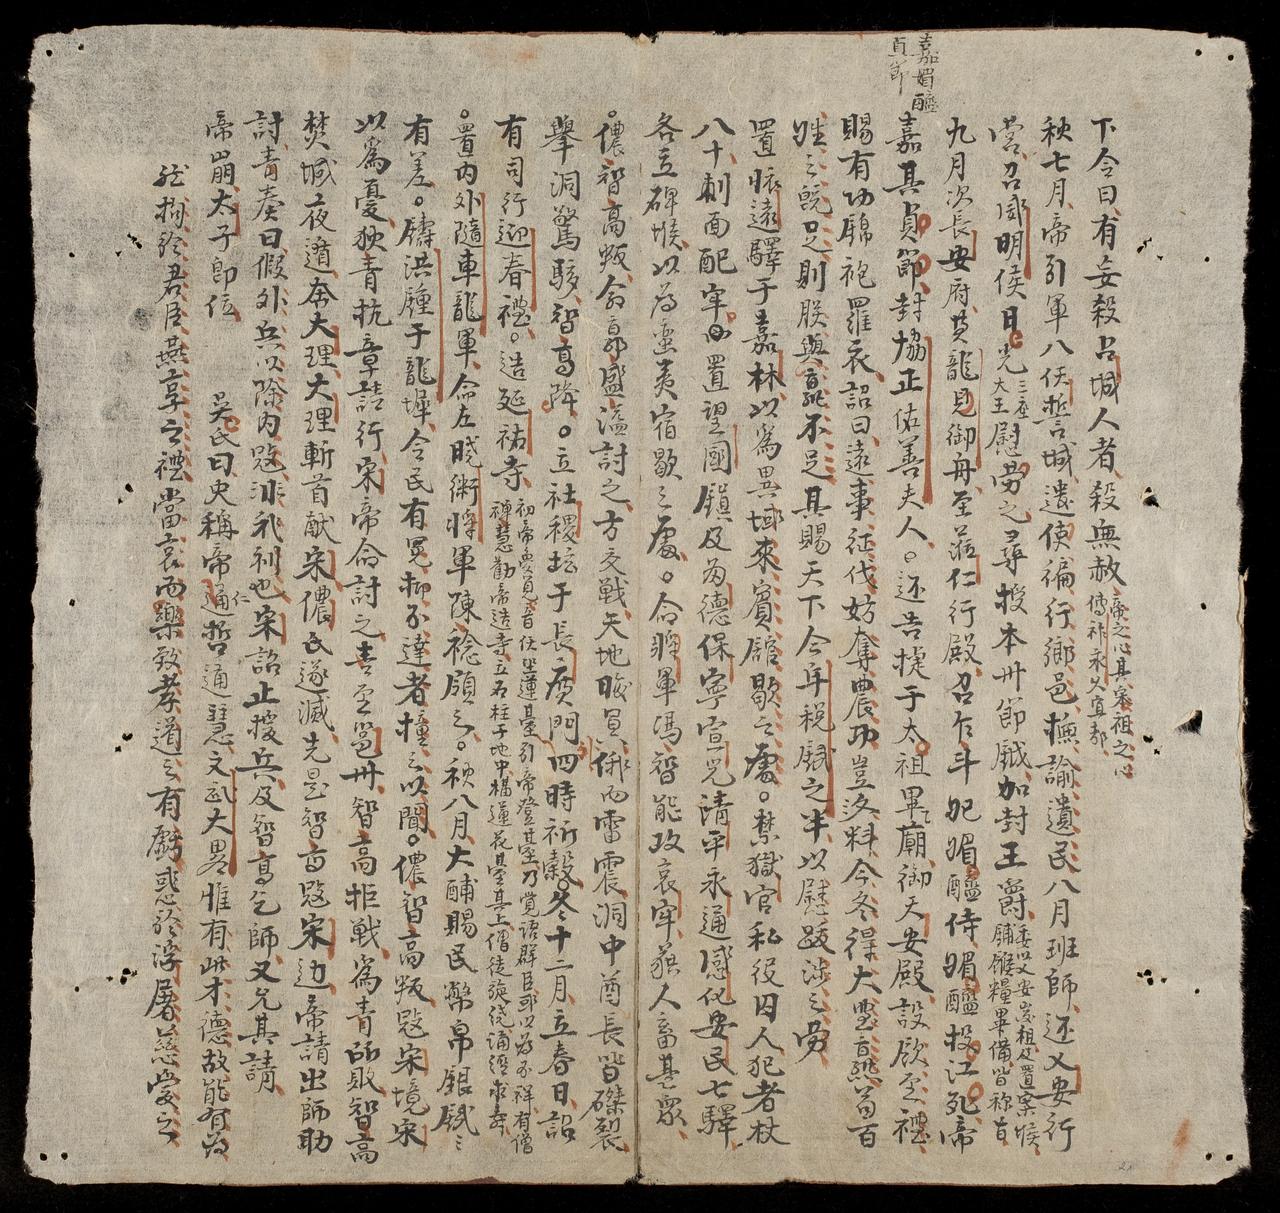 嘉媚醯
貞節
下令曰有妄殺占城人者殺無赦帝之心其宋祖之心傳祚永久宜哉
秋七月帝引軍入仸誓城遣使徧行鄉邑撫諭遺民八月班師還乂安行
營召威明侯日光三座大王慰勞之尋授本州節鉞加封王爵委以乂安歲租及置寨堠舖饌糧畢備皆称旨
九月次長安府黄龍見御舟至蒞仁行殿召乍斗妃媚醯侍媚醯投江死帝
嘉其貞節封協正佑善夫人。还告捷于太祖畢廟御天安殿設飲至禮
賜有功錦袍羅衣詔曰遠事征伐妨奪農功豈洛料今冬得大豊熟苟百
姓之旣足則朕與孰不足其賜天下今年稅賦之半以慰跋涉之勞
置懷遠驛于嘉林以爲異域來賓舘歇之處。禁獄官私役囚人犯者杖
八十刺面配牢。置望國鎭及為德保寧宣光清平永通感化安民七驛
各立碑堠以為蛮夷宿歇之處。命將軍馮智能攻哀牢獲人畜甚衆
。儂智高叛命郭盛溢討之方交戦天地晦冥俄而雷震洞中酋長皆磔裂
舉洞驚駭智高降。立社稷坛于長廣門四時祈穀。冬十二月立春日詔
有司行迎春禮。造延祐寺初帝夢見觀音仸坐蓮臺引帝登臺乃覚語群臣或以為不祥有僧禅慧勸帝造寺立石柱于地中構蓮花臺其上僧徒旋繞誦經求壽
。置内外隨車龍軍命左曉衛將軍陳稔領之。秋八月大酺賜民幣帛銀賦
有差。鑄洪鍾于龍墀令民有冤抑不達者撞之以聞。儂智高叛冦宋境宋
以爲憂狄青抗章請行宋帝命討之青至邕州智高拒戦爲青所敗智高
焚城夜遁奔大理大理斬首献宋儂氏遂滅先是智高冦宋边帝請出師助
討青奏曰假外兵以除内冦非我利也宋詔止援兵及智高乞師又允其請
帝崩太子卽位　吳氏曰史稱帝通仁哲通慧文武大畧惟有此才德故能有為
然拘於君臣燕享之禮當哀而樂致孝道之有虧惑於浮屠慈愛之